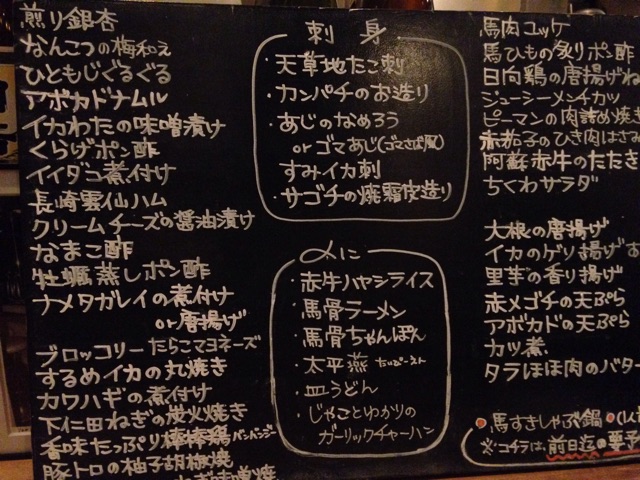 煎り銀杏
なんこつの梅和え
ひともじぐるぐる
アボカドナムル
イカわたの味噌漬け
くらげポン酢
イイダコ煮付け
長崎雲仙ハム
クリームチーズの醤油漬け
なまこ酢
牡蠣蒸しポン酢
ナメタガレイの煮付け
or唐揚げ
ブロッコリーたらこマヨネーズ
するめイカの丸焼き
カワハギの煮付け
下仁田ねぎの炭火焼き
香味たっぷり棒棒鶏バンバンジー
豚トロの柚子胡椒焼
刺身
・天草地たこ刺
・カンパチのお造り
・あじのなめろう
orゴマあじ(ゴマさば風)
・すみイカ刺
・サゴチの焼霜皮造り
〆に
・赤牛ハヤシライス
・馬骨ラーメン
・馬骨ちゃんぽん
・太平燕 たいぴーえん
・皿うどん
・じゃことわかりの
ガーリックチャーハン
馬肉ユッケ
馬ひもの炙りポン酢
日向鶏の唐揚げね
ジューシーメンチカツ
ピーマンの肉詰め焼き
赤茄子のひき肉はさみ
阿蘇赤牛のたたき
ちくわサラダ
大根の唐揚げ
イカのゲソ揚げ
里芋の香り揚げ
赤メゴチの天ぷら
アボカドの天ぷら
カツ煮
タラほほ肉のバター
馬すきしゃぶ鍋 (1人
※コチラは、前日迄の要予